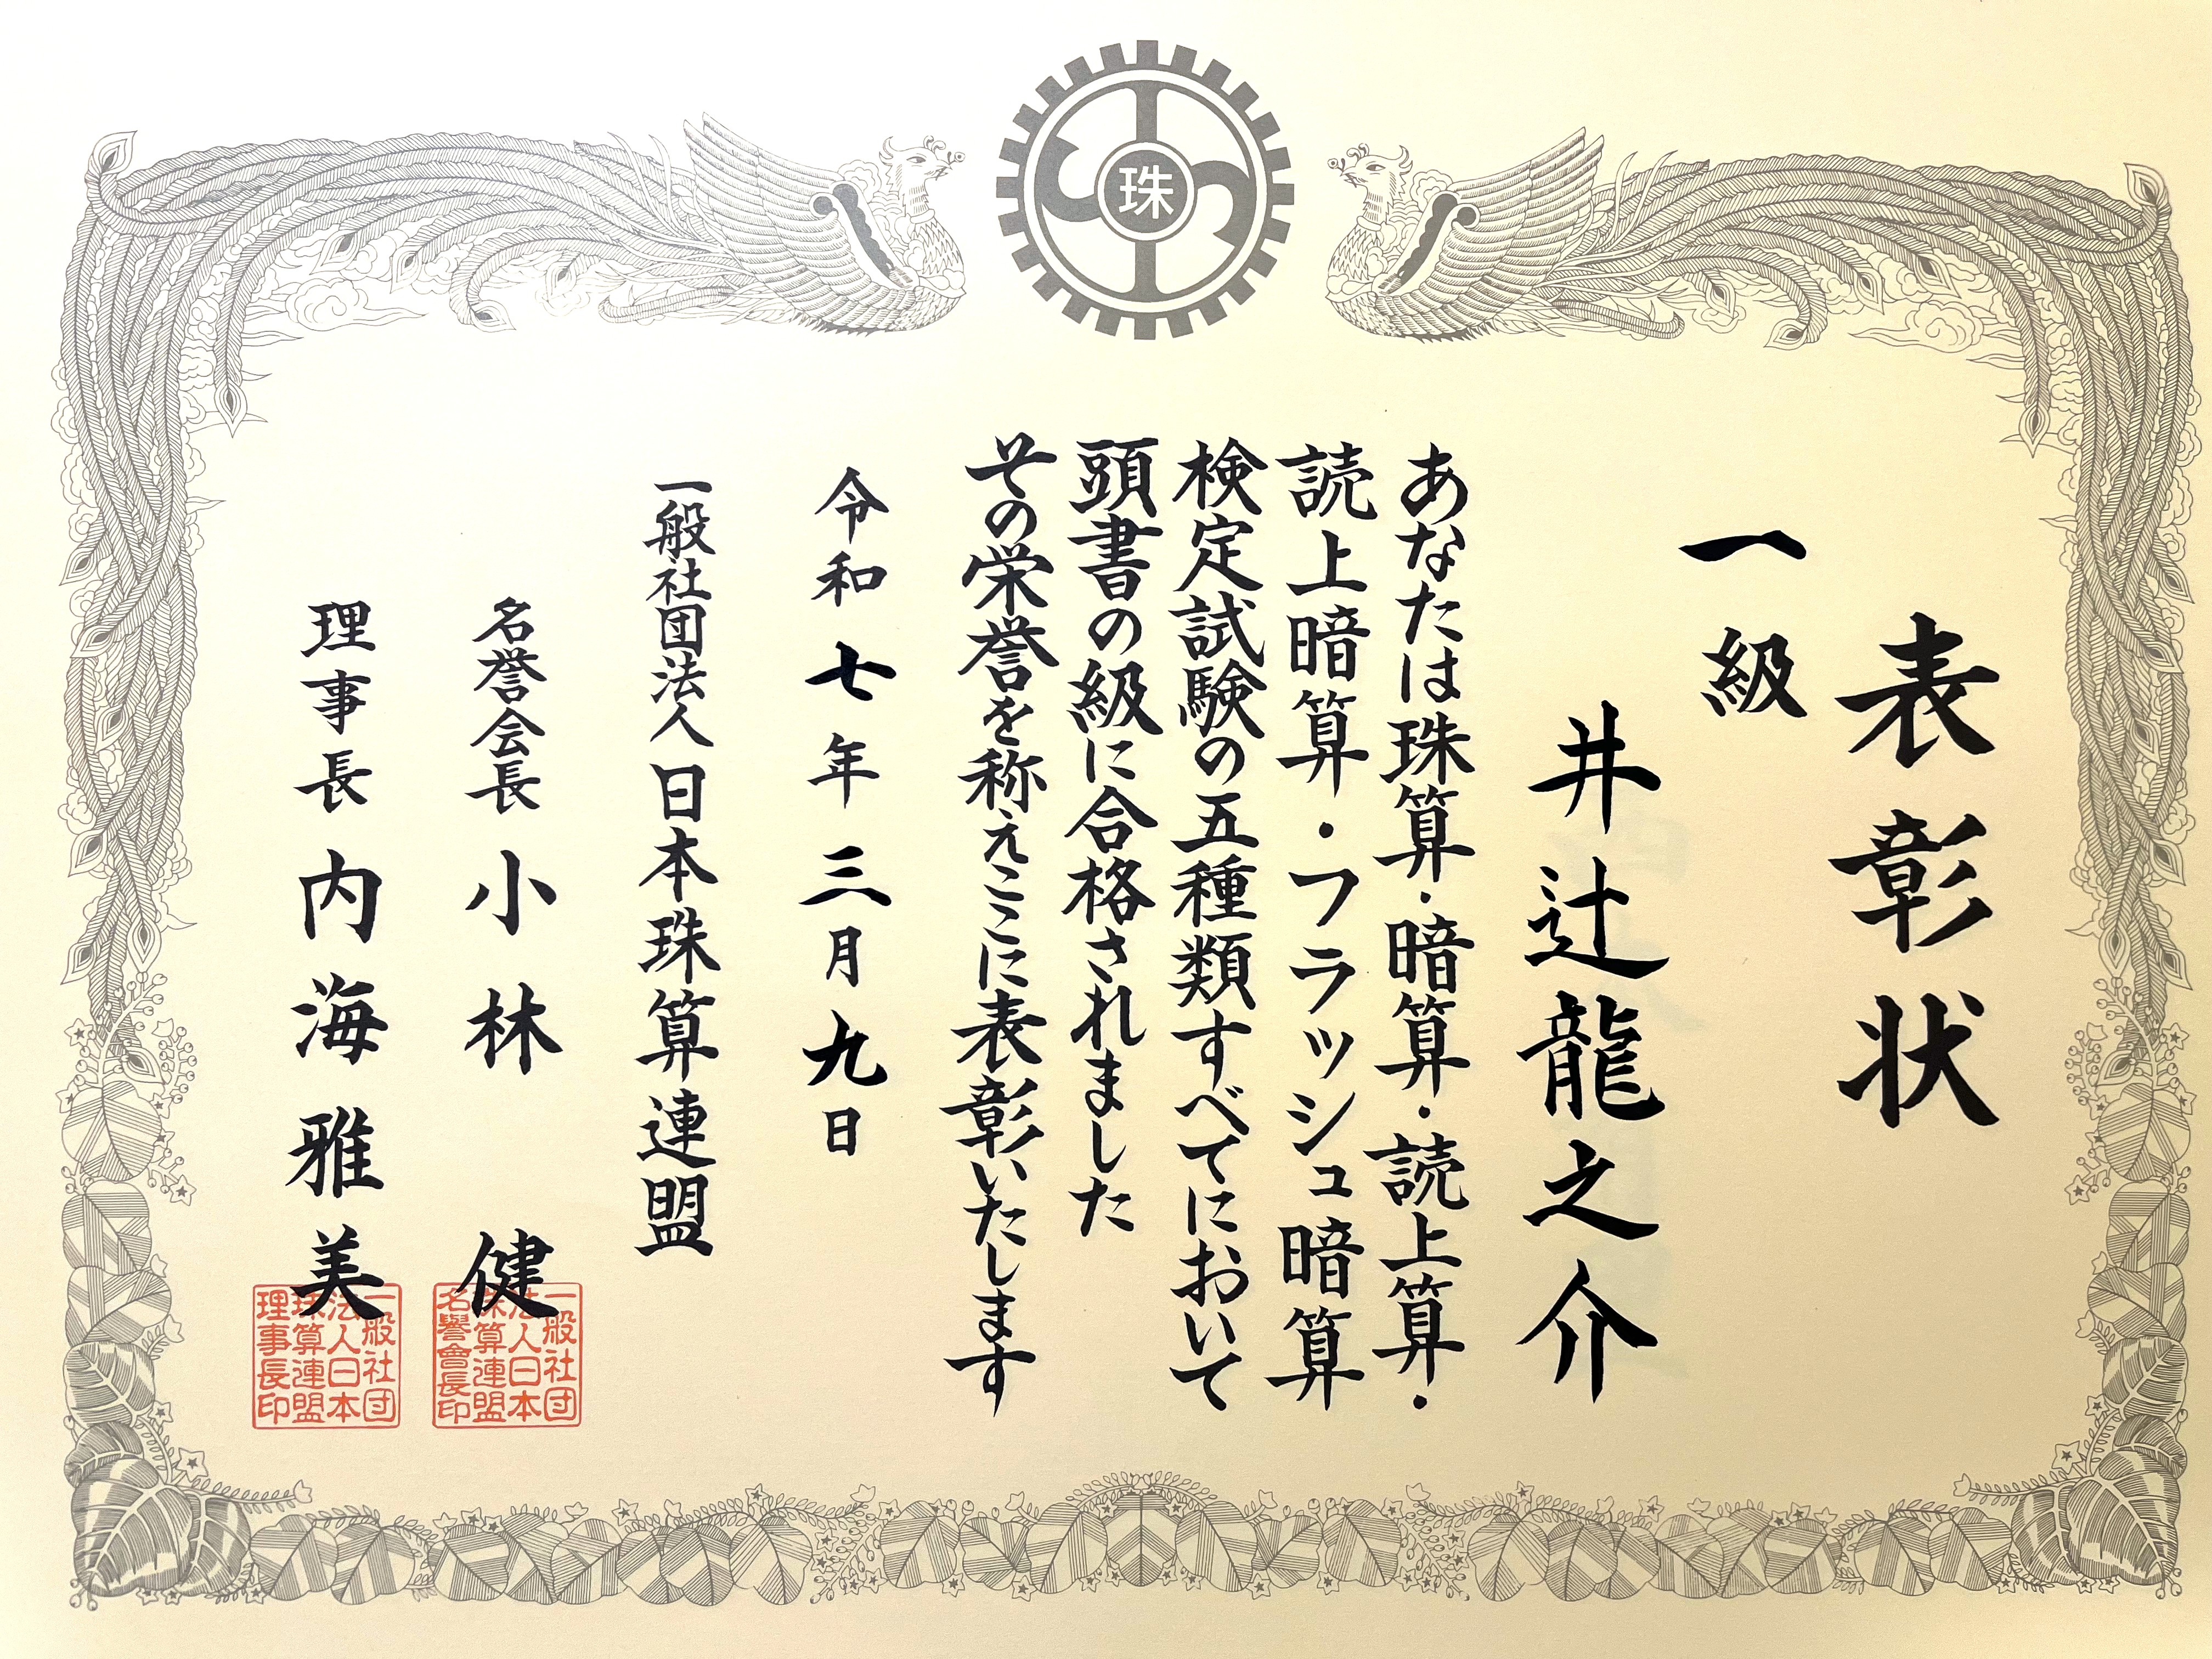 珠
表彰状
一級
井辻龍之介
あなたは珠算・暗算・読上算・
読上暗算・フラッシュ暗算
検定試験の五種類すべてにおいて
頭書の級に合格されました
その栄誉を称えここに表彰いたします
令和七年三月九日
一般社団法人日本珠算連盟
名誉会長 小林 健
一般社団
法人日本
珠算連盟
名誉會長印
理事長 内海雅美
一般社団
法人日本
珠算連盟
理事長印